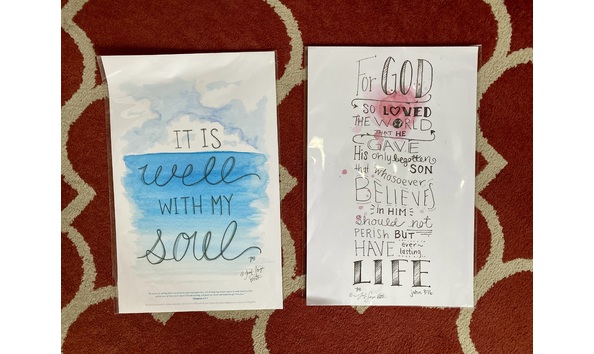 IT IS
well
WITH MY
soul
For GOD
SO LOVED
THE WORLD
THAT HE
GAVE
His only begotten
SON
that whosoever
BELIEVES
IN HIM
should not
PERISH BUT
HAVE ever-
lasting
LIFE
John 3:16